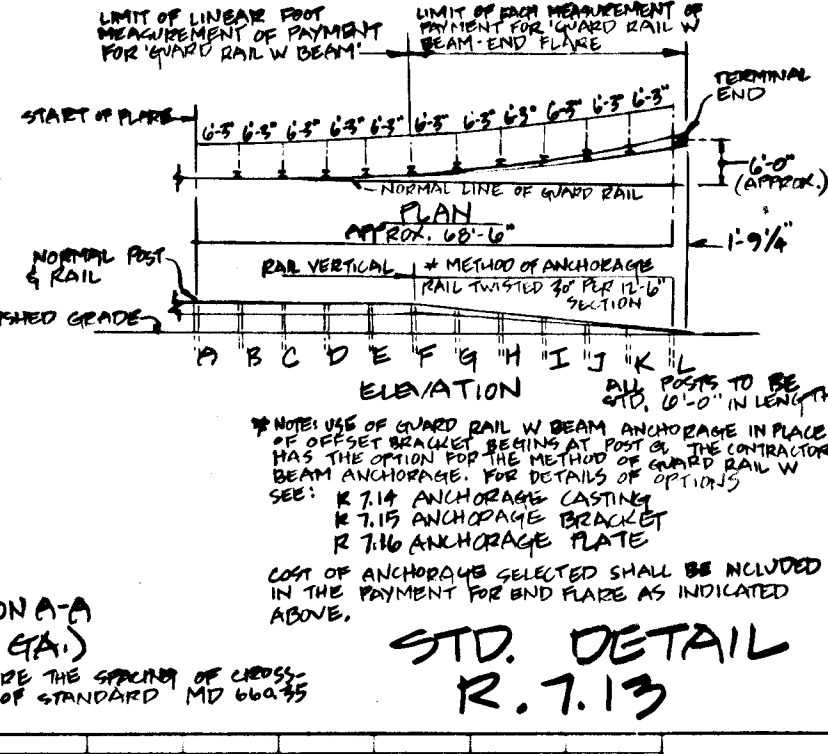 LIMIT OF LINEAR FOOT
MEASUREMENT OF PAYMENT
FOR 'GUARD RAIL W BEAM'
LIMIT OF EACH MEASUREMENT OF
PAYMENT FOR 'GUARD RAIL W
BEAM-END FLARE
TERMINAL
END
START OF FLARE
6'-3" 6'-3" 6'-3" 6'-3" 6'-3" 6'-3" 6'-3" 6'-3" 6'-3" 6'-3" 6'-3"
6'-0"
(APPROX.)
NORMAL LINE OF GUARD RAIL
PLAN
APPROX. 68'-6"
1'-9 1/4"
NORMAL POST
& RAIL
RAIL VERTICAL
* METHOD OF ANCHORAGE
RAIL TWISTED 30° PER 12'-6"
SECTION
SHED GRADE
A B C D E F G H I J K L
ELEVATION
ALL POSTS TO BE
STD. 6'-0" IN LENGTH
* NOTE: USE OF GUARD RAIL W BEAM ANCHORAGE IN PLACE
OF OFFSET BRACKET BEGINS AT POST G. THE CONTRACTOR
HAS THE OPTION FOR THE METHOD OF GUARD RAIL W
BEAM ANCHORAGE. FOR DETAILS OF OPTIONS
SEE: R 7.14 ANCHORAGE CASTING
R 7.15 ANCHORAGE BRACKET
R 7.16 ANCHORAGE PLATE
COST OF ANCHORAGE SELECTED SHALL BE INCLUDED
IN THE PAYMENT FOR END FLARE AS INDICATED
ABOVE.
ON A-A
GA.)
RE THE SPACING OF CROSS-
OF STANDARD MD 660.35
STD. DETAIL
R.7.13